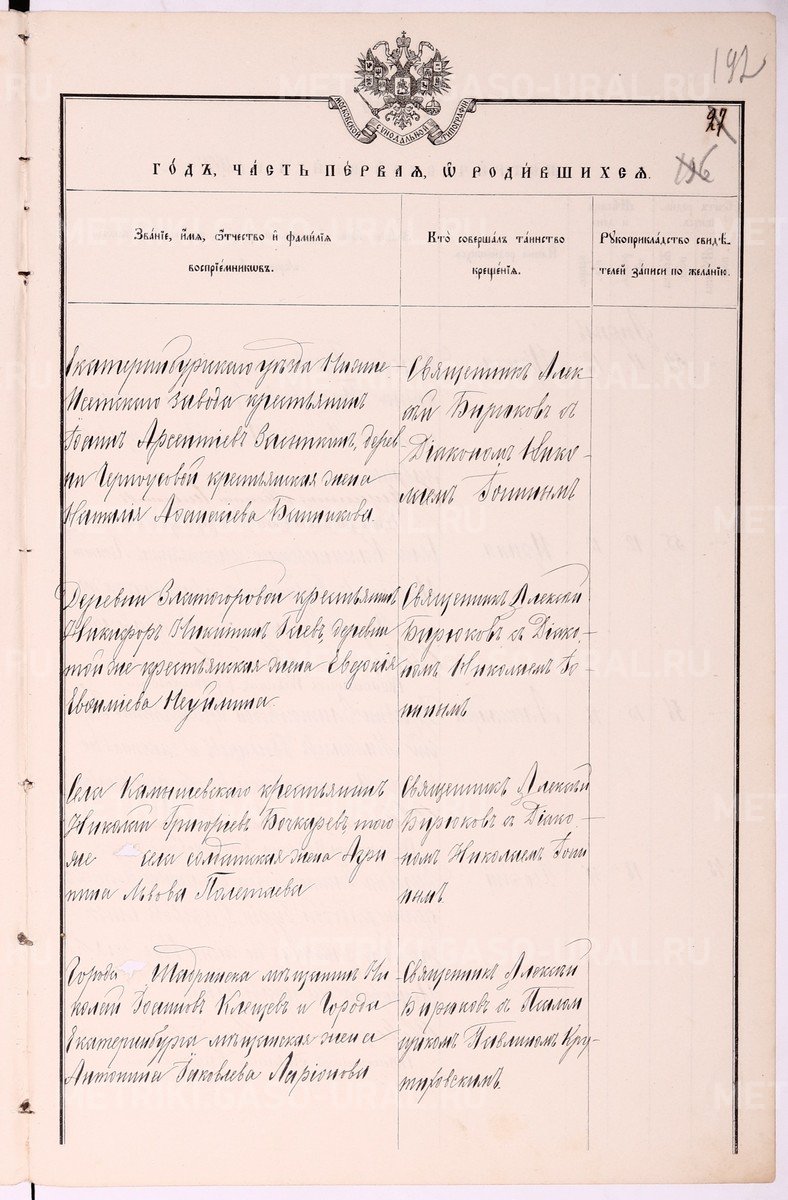 192
МОСКОВСКОЙ СѴНОДАЛЬНОЙ ТИПОГРАФІИ
27
186
ГО́ДЪ, ЧА́СТЬ ПЕ́РВАЯ, Ѡ РОДИ́ВШИХСЯ.
Зва́нїе, и҆́мя, ѻ҆́тчество и҆ фами́лїя
воспрїе́мникѡвъ.
Кто̀ соверша́лъ та́инство
креще́нїя.
Рꙋкоприкла́дство свидѣ́-
телей за́писи по жела́нїю.
Екатеринбургскаго уѣзда Нижне-
Исетскаго завода крестьянинъ
Іоаннъ Арсентіевъ деревни
Черноусовой крестьянская жена
Наталія Аѳанасіева Банникова.
Священникъ Алек-
сѣй Бирюковъ съ
Діакономъ Нико-
лаемъ Топинымъ
Деревни Златогоровой крестьянинъ
Никифоръ Никитинъ Гаевъ, деревни
той же крестьянская жена Евдокія
Евѳиміева Неуймина.
Священникъ Алексѣй
Бирюковъ съ Діако-
номъ Николаемъ То
пинымъ
Села Камышевскаго крестьянинъ
Николай Григоріевъ Бочкаревъ, того
же села солдатская жена Агри
пина Львова Полетаева
Священникъ Алексѣй
Бирюковъ съ Діако-
номъ Николаемъ Топи
нымъ.
Города Шадринска мѣщанинъ Ни
колай Іоанновъ Клещевъ и Города
Екатеринбурга мѣщанская жена
Антонина Іаковлева Ларіонова
Священникъ Алексѣй
Бирюковъ съ Псалом
щикомъ Павлиномъ Кру-
тиховскимъ.